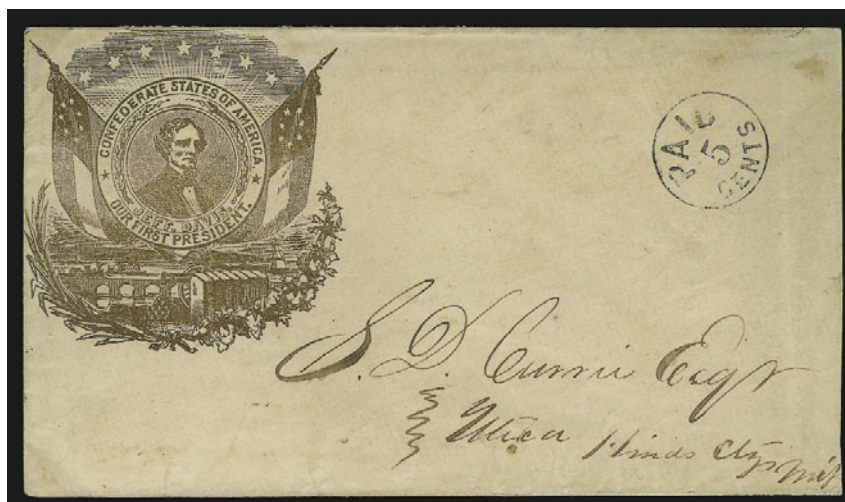 CONFEDERATE STATES OF AMERICA.
JEFF. DAVIS
OUR FIRST PRESIDENT.
PAID
5
CENTS
S. D. Currie Esqr
Utica Hinds Cty Mis